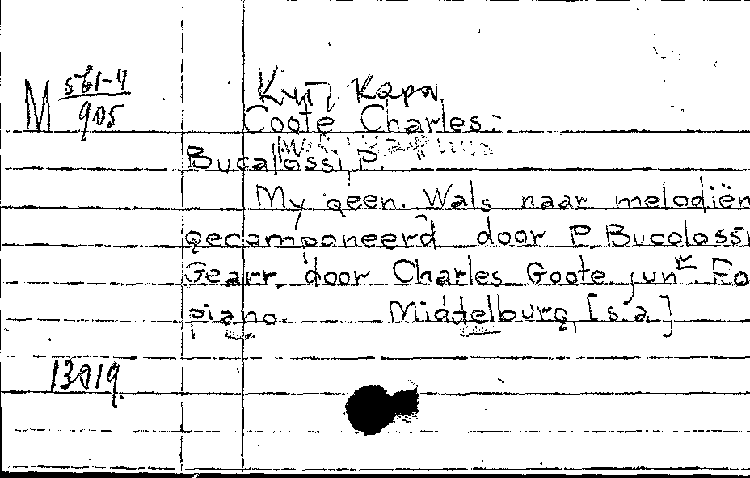 M 561-4
905
Кут, Карл
Coote Charles.
Bucalossi, P.
My qeen. Wals naar melodiën
gecomponeerd door P. Bucolossi
Gearr. door Charles Goote jun r. Fo
piano. Middelburg [s.a.]
13019.